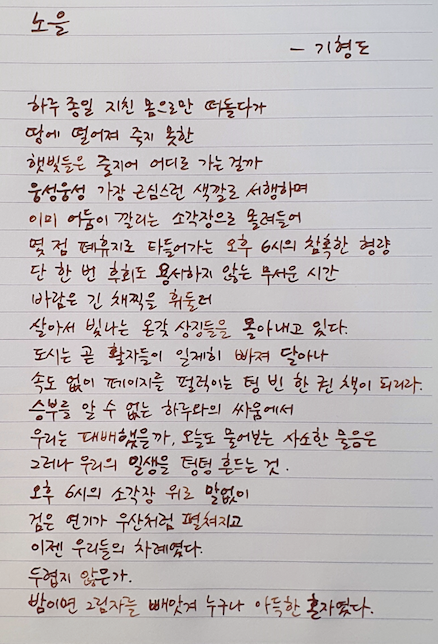 노을
- 기형도
하루 종일 지친 몸으로만 떠돌다가
땅에 떨어져 죽지 못한
햇빛들은 줄지어 어디로 가는 걸까
웅성웅성 가장 근심스런 색깔로 서행하며
이미 어둠이 깔리는 소각장으로 몰려들어
몇 점 폐휴지로 타들어가는 오후 6시의 참혹한 형량
단 한 번 후회도 용서하지 않는 무서운 시간
바람은 긴 채찍을 휘둘러
살아서 빛나는 온갖 상징들을 몰아내고 있다.
도시는 곧 활자들이 일제히 빠져 달아나
속도 없이 페이지를 펄럭이는 텅 빈 한 권 책이 되리라.
승부를 알 수 없는 하루와의 싸움에서
우리는 패배했을까. 오늘도 물어보는 사소한 물음은
그러나 우리의 일생을 텅텅 흔드는 것.
오후 6시의 소각장 위로 말없이
검은 연기가 우산처럼 펼쳐지고
이젠 우리들의 차례였다.
두렵지 않은가.
밤이면 그림자를 빼앗겨 누구나 아득한 혼자였다.